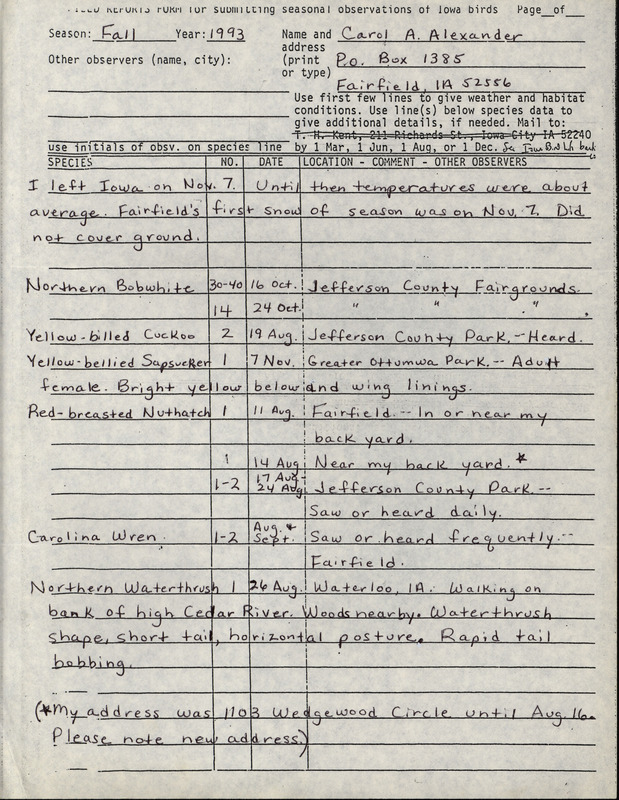 FIELD REPORTS FORM for submitting seasonal observations of Iowa birds Page__of__
Season: Fall Year: 1993 Name and Carol A. Alexander
address
Other observers (name, city): (print P.O. Box 1385
or type)
Fairfield, IA 52556
Use first few lines to give weather and habitat
conditions. Use line(s) below species data to
give additional details, if needed. Mail to:
T. H. Kent, 211 Richards St., Iowa City IA 52240
use initials of obsv. on species line by 1 Mar, 1 Jun, 1 Aug, or 1 Dec.
SPECIES NO. DATE LOCATION - COMMENT - OTHER OBSERVERS
I left Iowa on Nov. 7. Until then temperatures were about
average. Fairfield's first snow of season was on Nov. 7. Did
not cover ground.
Northern Bobwhite 30-40 16 Oct. Jefferson County Fairgrounds.
14 24 Oct. " " " .
Yellow-billed Cuckoo 2 19 Aug. Jefferson County Park. -- Heard.
Yellow-bellied Sapsucker 1 7 Nov. Greater Ottumwa Park. -- Adult
female. Bright yellow below and wing linings.
Red-breasted Nuthatch 1 11 Aug. Fairfield -- In or near my
back yard.
1 14 Aug Near my back yard. *
1-2 17 Aug-
24 Aug Jefferson County Park --
Saw or heard daily.
Carolina Wren 1-2 Aug. &
Sept. Saw or heard frequently --
Fairfield.
Northern Waterthrush 1 26 Aug. Waterloo, IA. Walking on
bank of high Cedar River. Woods nearby. Waterthrush
shape, short tail, horizontal posture. Rapid tail
bobbing.
(*My address was 1103 Wedgewood Circle until Aug. 16.
Please note new address.)